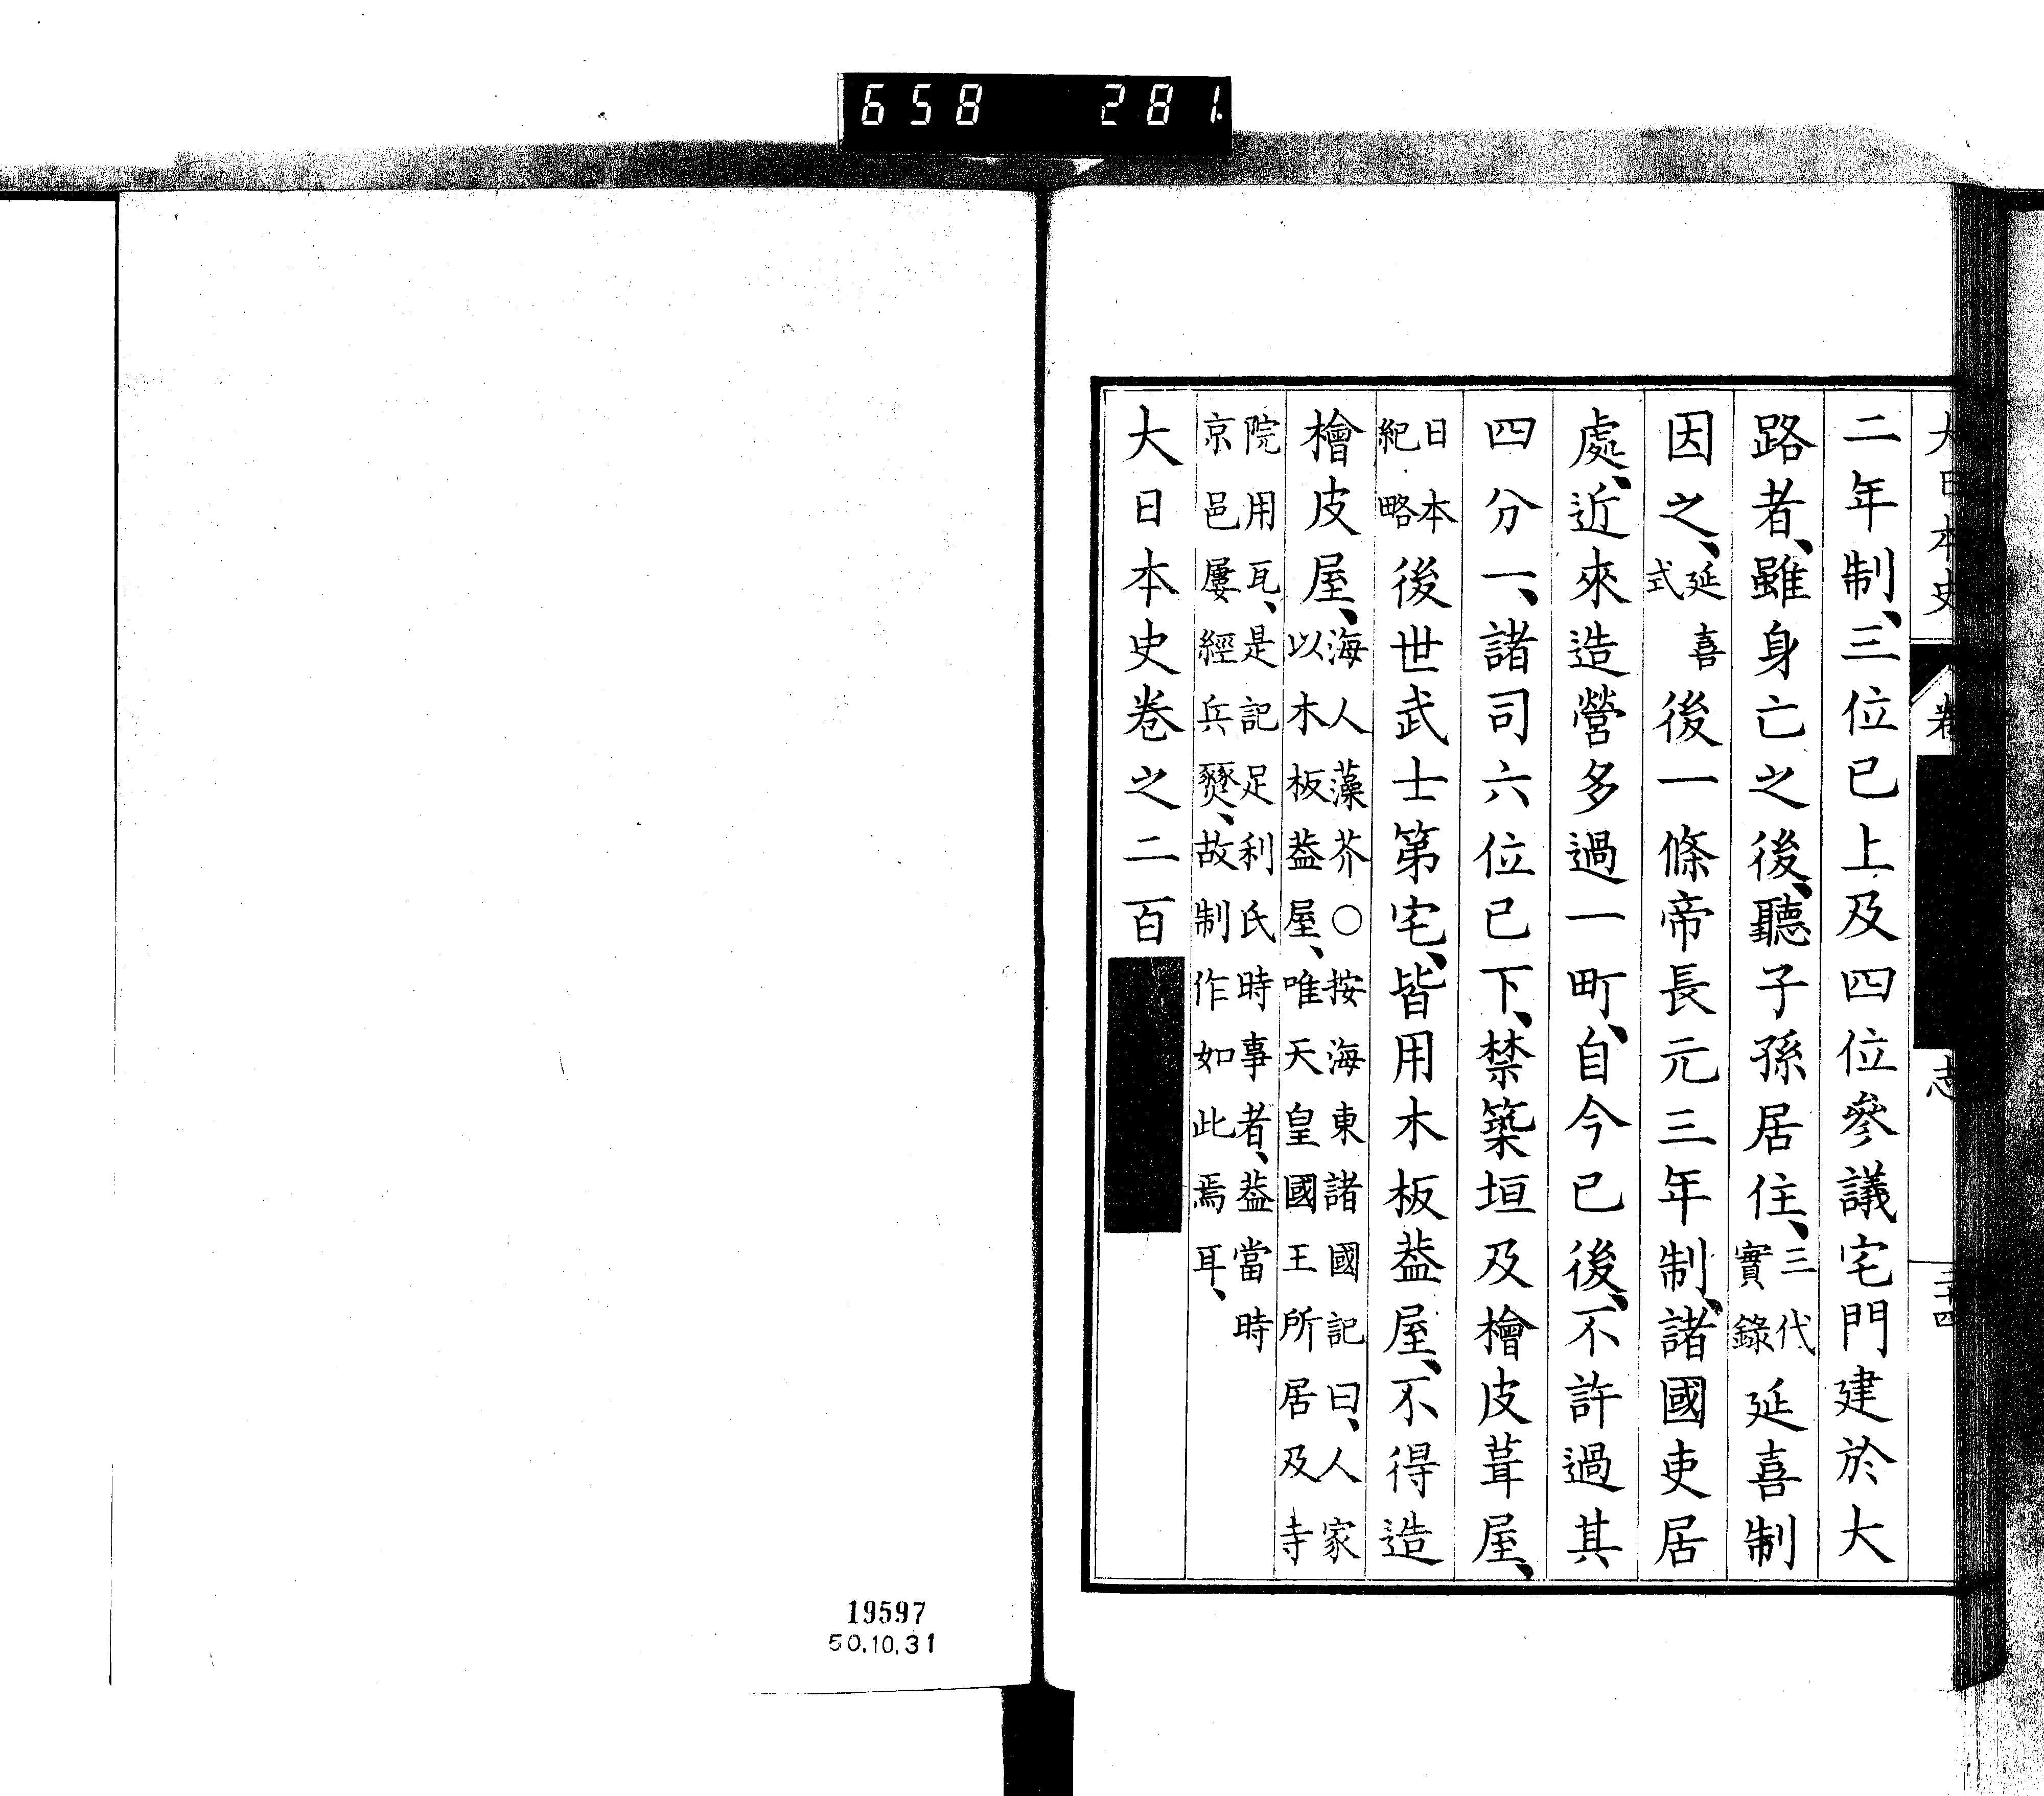 658 281
大日本史 卷 志 三十四
二年制、三位已上及四位參議宅門建於大
路者、雖身亡之後、聽子孫居住、三代實錄延喜制
因之、延喜式後一條帝長元三年制、諸國吏居
處、近來造營多過一町、自今已後、不許過其
四分一、諸司六位已下、禁築垣及檜皮葺屋、
日本紀略後世武士第宅、皆用木板葢屋、不得造
檜皮屋、海人藻芥○按海東諸國記曰、人家以木板葢屋、唯天皇國王所居及寺
院用瓦、是記足利氏時事者、葢當時京邑屢經兵燹、故制作如此焉耳、
大日本史卷之二百
19597
50.10.31